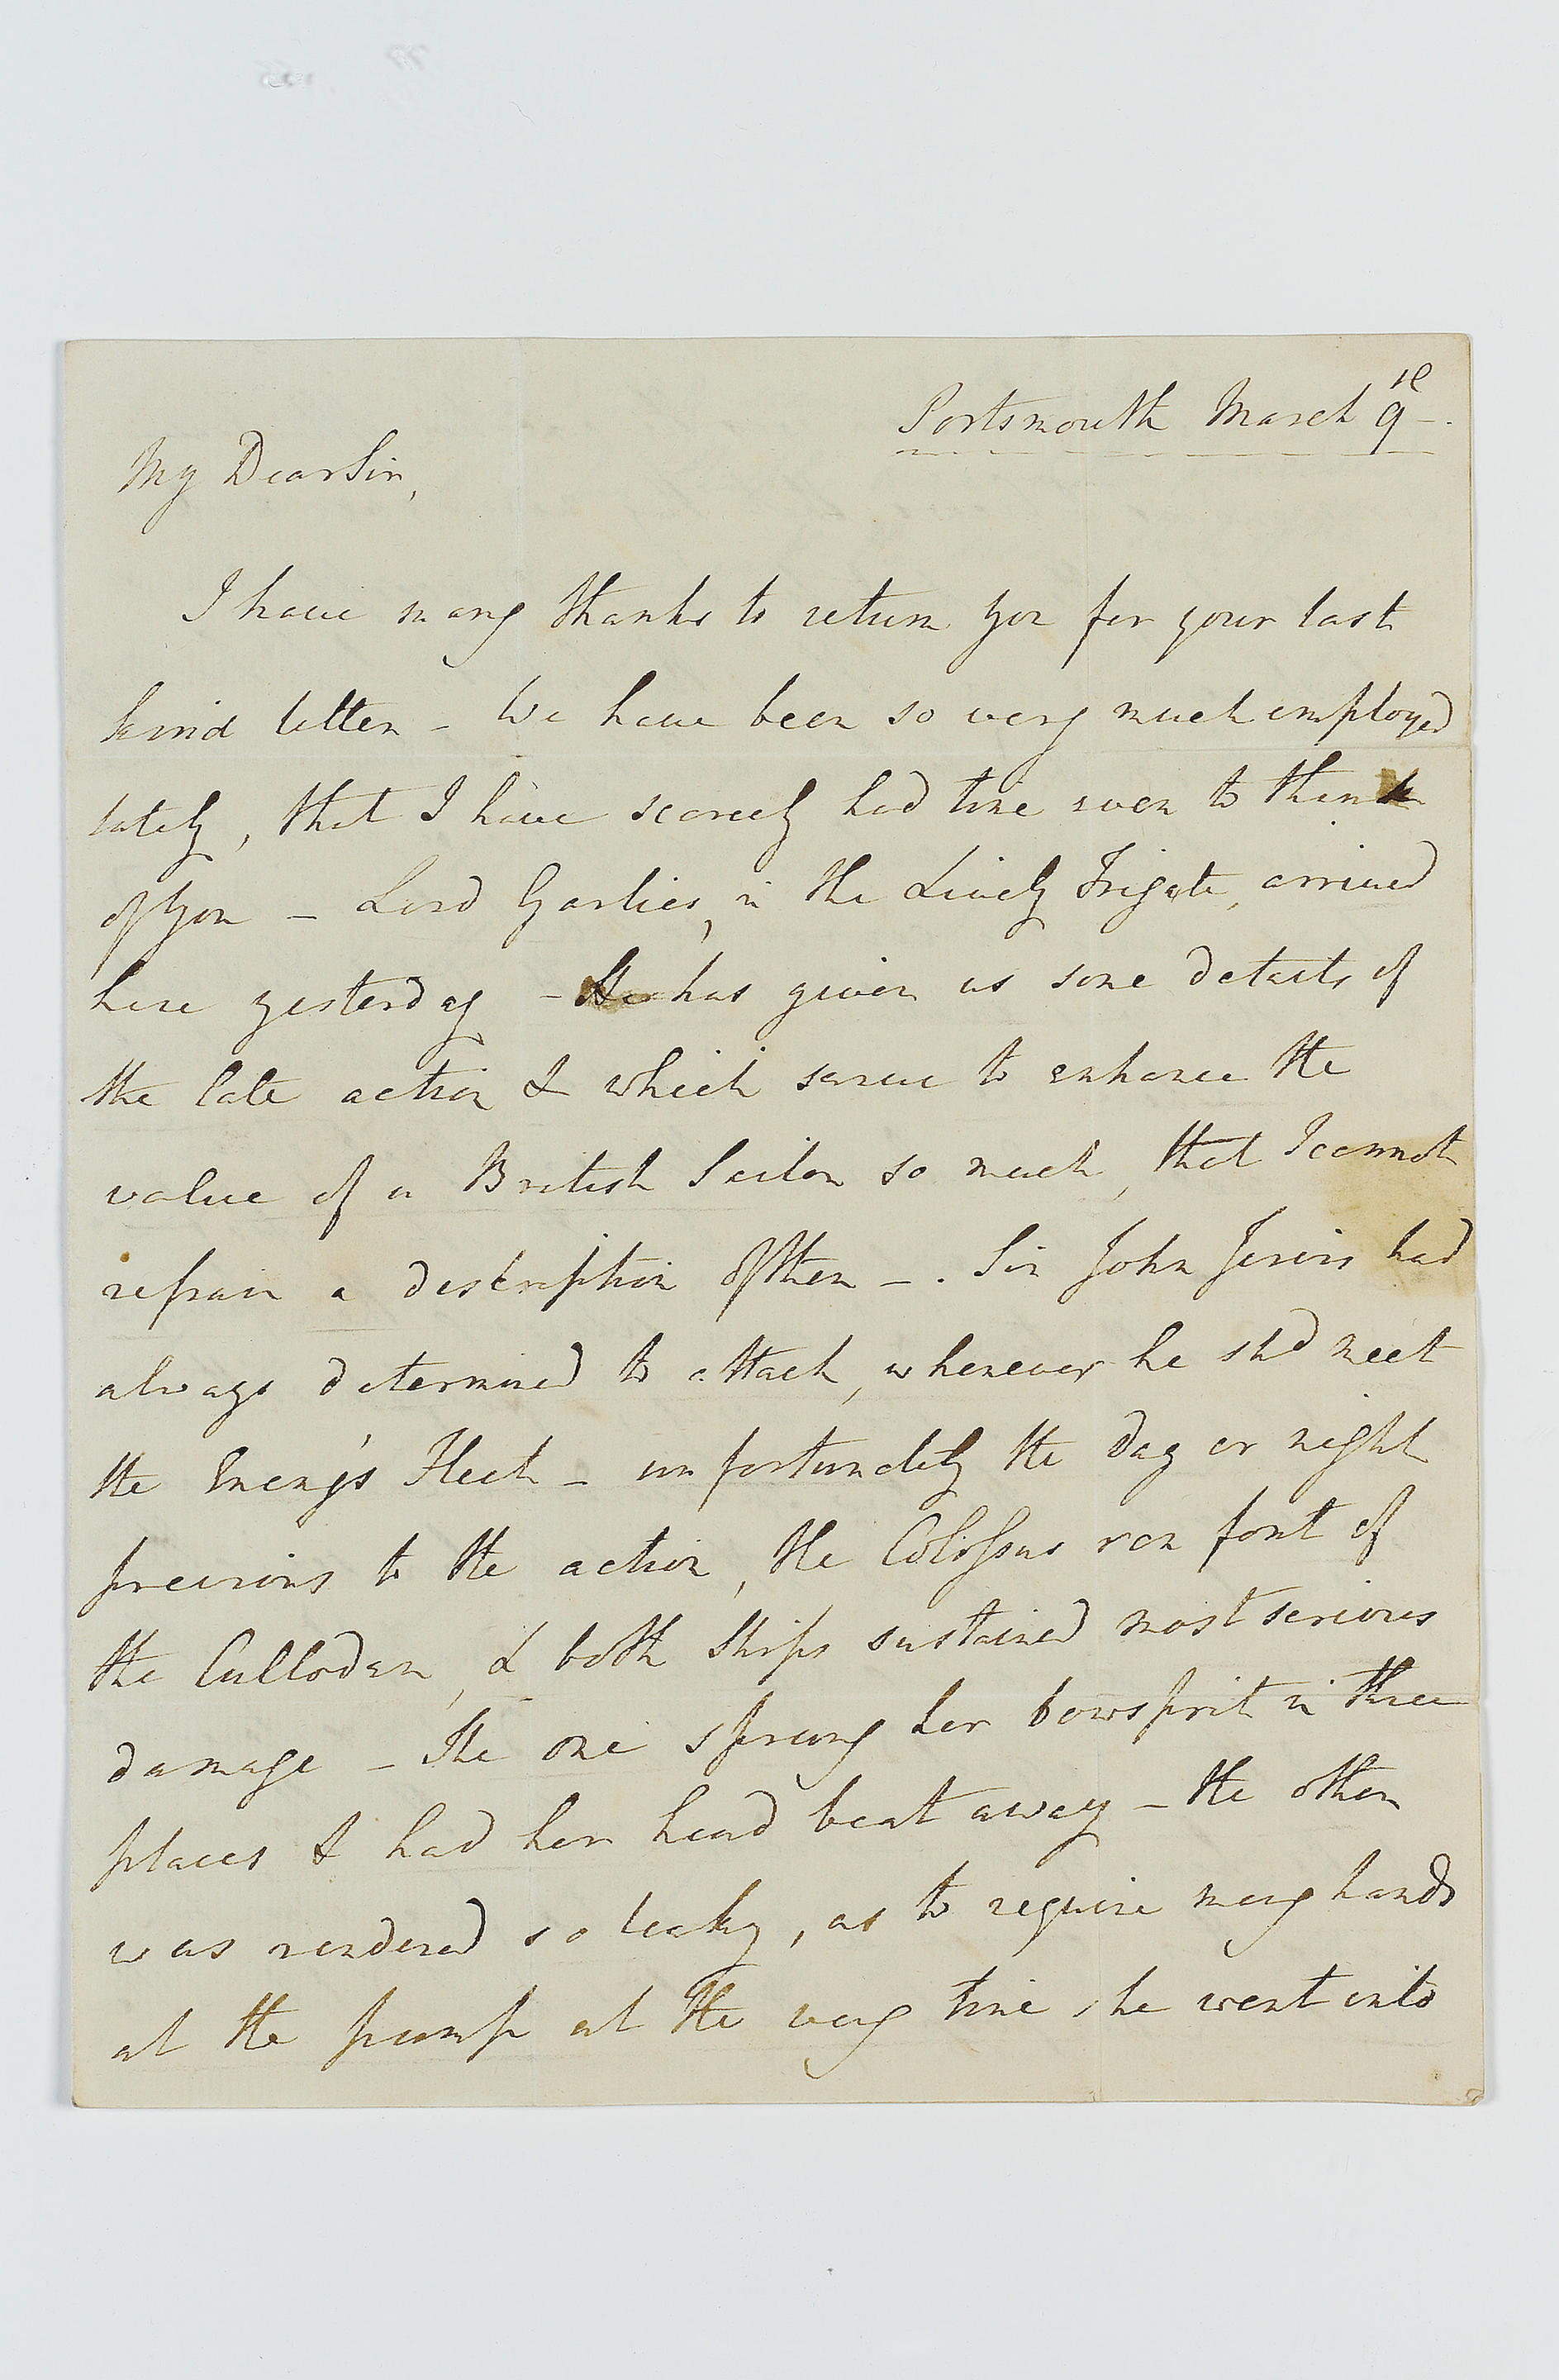 Portsmouth March 9th -.
My Dear Sir,
I have many thanks to return you for your last
kind letter - We have been so very much employed
lately, that I have scarcely had time even to think
of you - Lord Garlies, in the Lively Frigate, arrived
here yesterday - He has given us some details of
the late action & which serve to enhance the
value of a British Sailor so much, that I cannot
refrain a description of them -. Sir John Jervis had
always determined to attack, whenever he shd meet
the Enemy's Fleet - unfortunately the day or night
previous to the action, the Colossus ran font of
the Culloden, & both Ships sustained most serious
damage - The one sprung her bowsprit in three
places & had her head beat away - the other
was rendered so leaky, as to require many hands
at the pump at the very time she went into